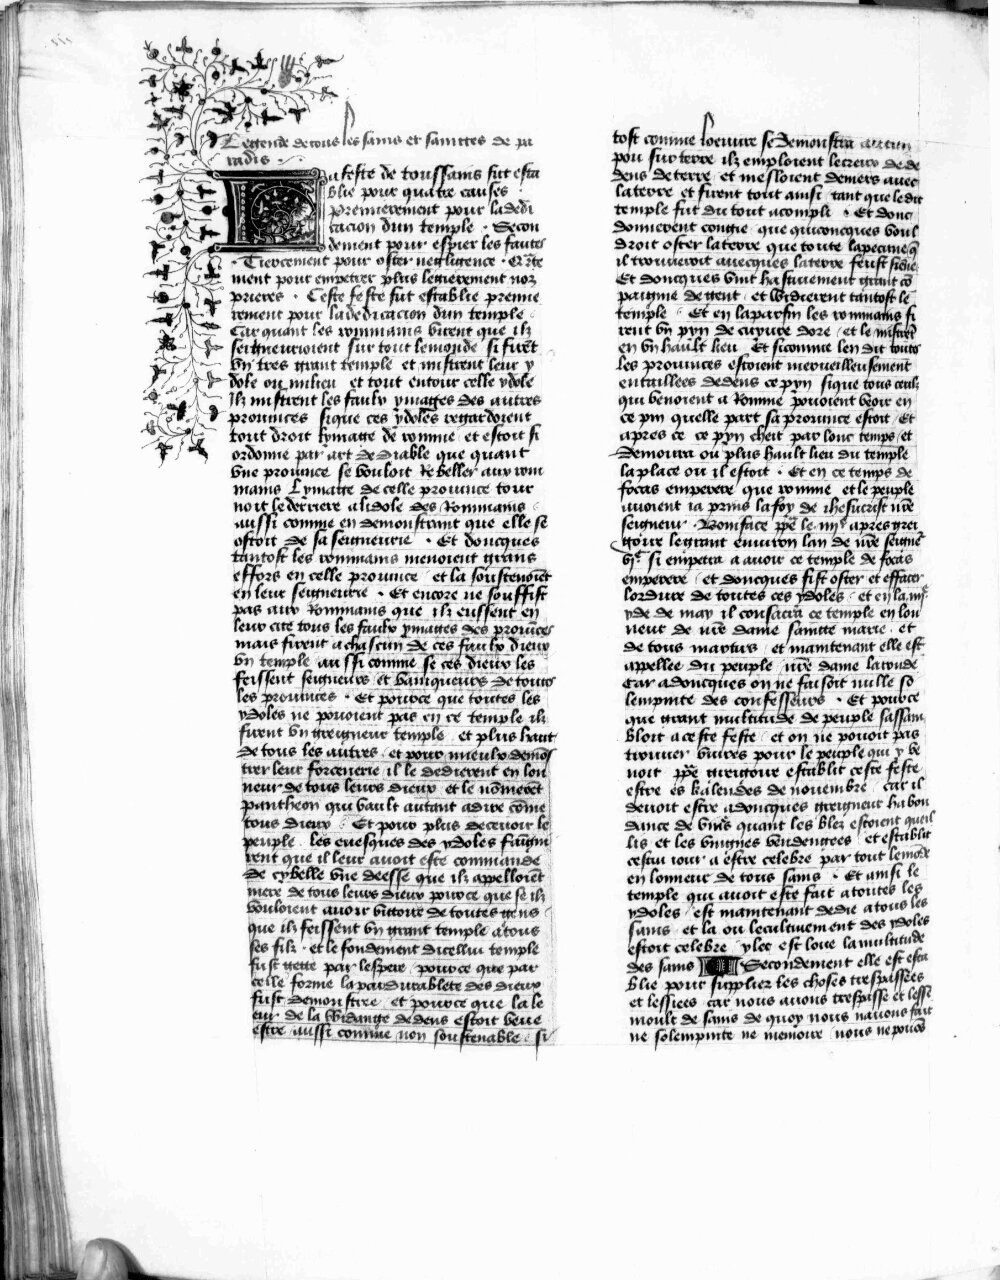 Legende de tous les sains et sainctes de pa
radis .
La feste de toussains fut esta
blie pour quatre causes
Premierement pour la dedi
cacion dun temple . Secon
dement pour espier les fautes
. Tiercement pour oster negligence . Qrte
ment pour empetrer plus legierement noz
prieres . Ceste feste fut establie premie
rement pour la dedicacion dun temple
Car quant les rommains virent que ilz
seigneurioient sur tout le monde si firēt
vn tres grant temple et mistrent leur y
dole ou milieu et tout entour celle ydole
ilz mistrent les faulx ymages des autres
prouinces si que ces ydoles regardoient
tout droit lymage de romme et estoit si
ordonne par art de diable que quant
vne prouince se vouloit Rebeller aux rom
mains Lymage de celle prouince tour
noit le derriere a lidole des Rommains
aussi comme en demoustrant que elle se
ostoit de sa seigneurie . Et doncques
tantost les rommains menoient grans
effors en celle prouince et la soustenoiēt
en leur seigneurie . Et encore ne souffist
pas aux Rommains que ilz eussent en
leur cite tous les faulx ymages des prouīces
mais firent a chascun de ces faulx dieux
vn temple aussi comme se ces dieux les
feissent seigneurs et vainqueurs de toutes
les prouinces . Et pource que toutes les
ydoles ne pouoient pas en ce temple ilz
firent vn greigneur temple et plus hault
de tous les autres et pour mieulx demōs
trer leur forcenerie il le dedierent en lon
neur de tous leurs dieux et le nōmerēt
pantheon qui vault autant a dire cōme
tous dieux . Et pour plus deceuoir le
peuple les euesques des ydoles faigni
rent que il leur auoit este commande
de cybelle vne deesse que ilz appelloiēt
mere de tous leurs dieux pource que se ilz
vouloient auoir victoire de toutes gens
que ilz feissent vn grant temple a tous
ses filz . et le fondement dicellui temple
fust gette par lespere pource que par
celle forme la pardurablete des dieux
fust demonstree et pource que la le
eur de la widange dedens estoit veue
estre aussi comme non soustenable si
tost comme loeuure se demonstra aucun
pou sur terre ilz emploient le creux de de
dens de terre et mesloient deniers auec
la terre et firent tout ainsi tant que le dit
temple fut du tout acompli . Et donc
donnerent congie que quiconcques voul
droit oster la terre que toute la pecune q̄
il trouueroit auecques la terre feust sienne
Et doncques vint hastiuement grant cō
paignie de gent et widierent tantost le
temple . Et en la parfin les rommains fi
rent vn pyn de cuyure dore et le mistrēt
en vn hault lieu Et si comme len dit toutes
les prouinces estoient merueilleusement
entaillees dedens ce pyn si que tous ceulz
qui venoient a Romme pouoient veoir en
ce pin quelle part sa prouince estoit Et
apres ce ce pyn cheit par lonc temps et
demoura ou plus hault lieu du temple
la place ou il estoit . Et en ce temps de
focas emperere que romme et le peuple
auoient ia prins la foy de ihesucrist nr̄e
seigneur . Boniface ppe le iiije apres gre
goire le grant enuiron lan de nr̄e seignr̄
vjc si empetra a auoir ce temple de focas
emperere et doncques fist oster et effacer
lordure de toutes ces ydoles et en la iije
yde de may il consacra ce temple en lon
neur de nr̄e dame saincte marie et
de tous martirs et maintenant elle est
appellee du peuple nr̄e dame la ronde
Car adoncques on ne faisoit nulle so
lempnite des confesseurs . Et pource
que grant multitude de peuple sassam
bloit a ceste feste et on ne pouoit pas
trouuer viures pour le peuple qui y ve
noit ppe gregoire establit ceste feste
estre es kalendes de nouembre car il
deuoit estre adoncques greigneur habon
dance de viures quant les blez estoient queil
lis et les vingnes vendengees et establit
cestui iour a estre celebre par tout le mōde
en lonneur de tous sains . Et ainsi le
temple qui auoit este fait a toutes les
ydoles est maintenant dedie a tous les
sains et la ou le cultiuement des ydoles
estoit celebre ylec est loue la multitude
des sains Secondement elle est esta
blie pour supplier les choses trespassees
et lessiees car nous auons trespasse et lesse
moult de sains de quoy nous nauons fait
ne solempnite ne memoire nous ne pouōs